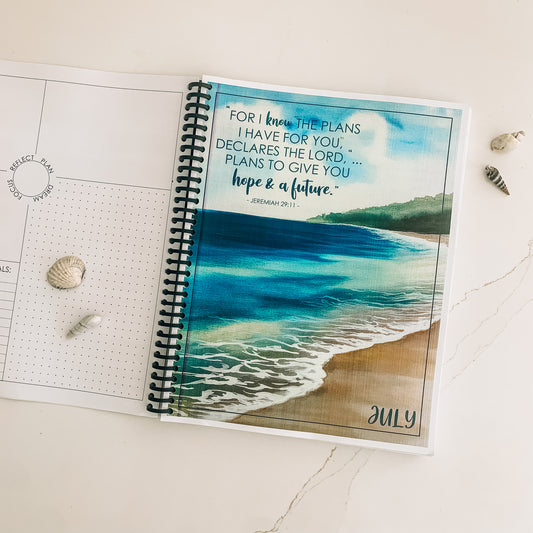 FOCUS REFLECT PLAN DREAM
ALS:
"FOR I know THE PLANS
I HAVE FOR YOU,"
DECLARES THE LORD, ... "
PLANS TO GIVE YOU
hope & a future."
- JEREMIAH 29:11 -
JULY